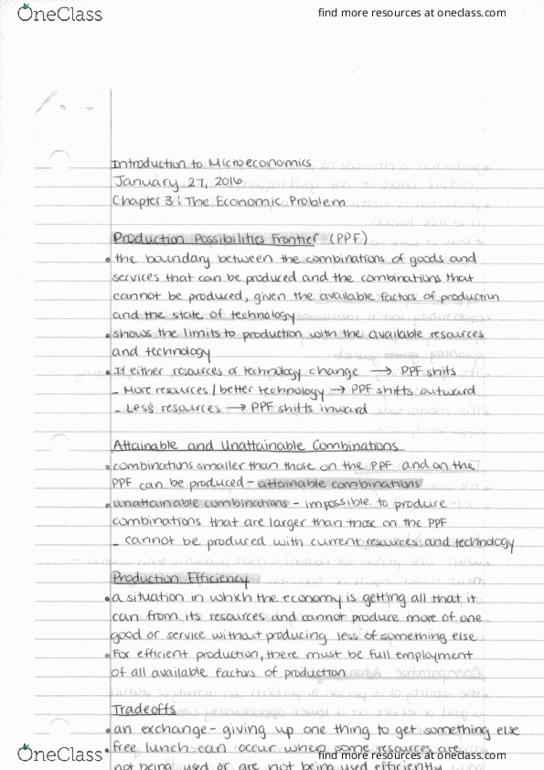 OneClass
find more resources at oneclass.com
Introduction to Microeconomics
January 27, 2016
Chapter 3: The Economic Problem
Production Possibilities Frontier (PPF)
• the boundary between the combinations of goods and
services that can be produced and the combinations that
cannot be produced, given the available factors of production
and the state of technology
• shows the limits to production with the available resources
and technology
• If either resources or technology change → PPF shifts
- More resources / better technology → PPF shifts outward
- Less resources → PPF shifts inward
Attainable and Unattainable Combinations
• combinations smaller than those on the PPF and on the
PPF can be produced - attainable combinations
• unattainable combinations - impossible to produce
combinations that are larger than those on the PPF
- cannot be produced with current resources and technology
Production Efficiency
• a situation in which the economy is getting all that it
can from its resources and cannot produce more of one
good or service without producing less of something else
• For efficient production, there must be full employment
of all available factors of production
Tradeoffs
• an exchange - giving up one thing to get something else
• free lunch can occur when some resources are
not being used or are not being used efficiently
OneClass
find more resources at oneclass.com